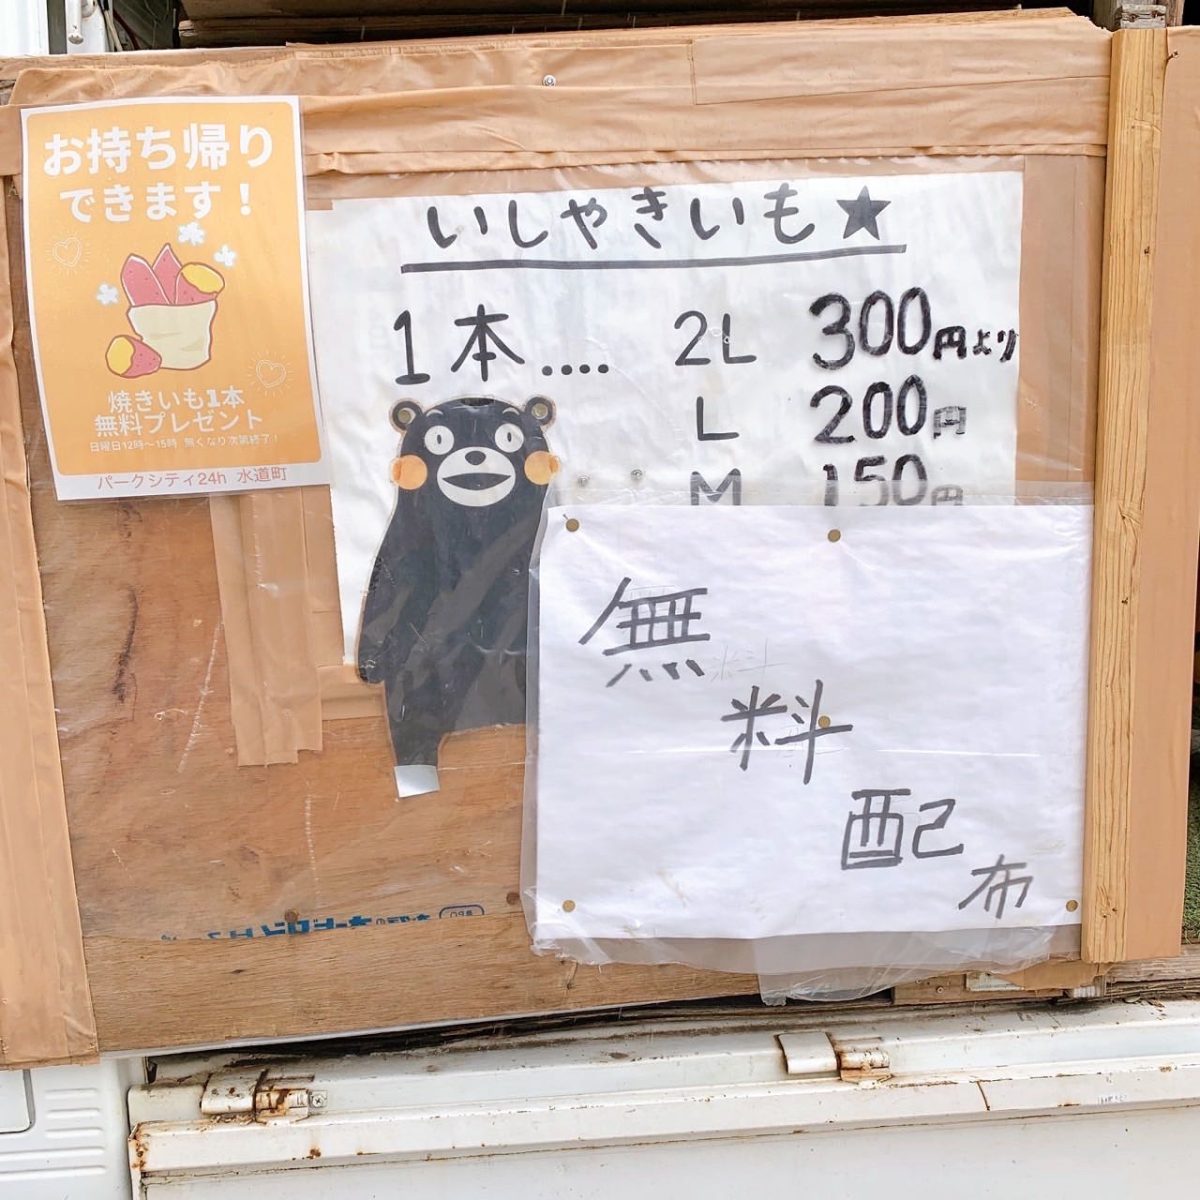 お持ち帰り
できます！
焼きいも1本
無料プレゼント
日曜日12時〜15時 無くなり次第終了！
パークシティ24h 水道町
いしゃきいも★
1本.... 2L 300円より
L 200円
M 150円
無料配布